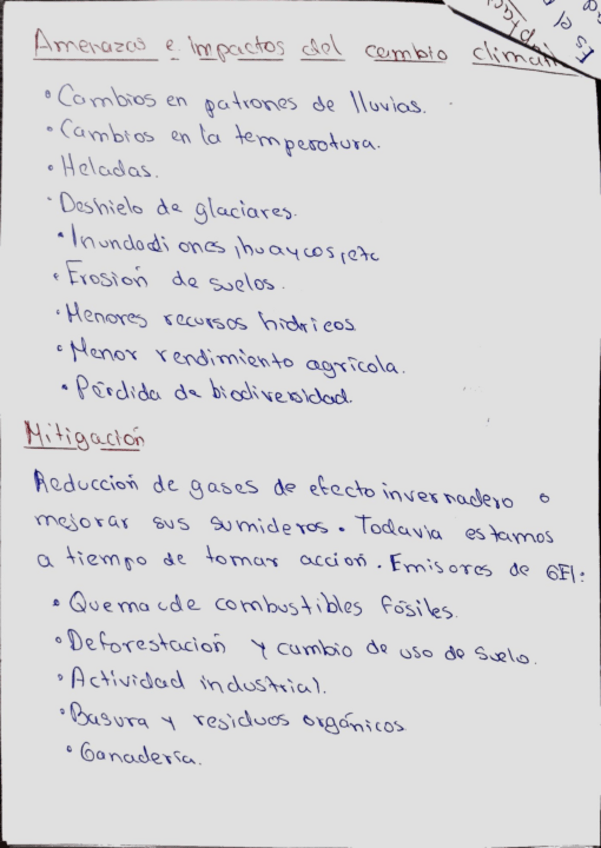 Amenazas e impactos del cambio climáti
• Cambios en patrones de lluvias.
• Cambios en la temperatura.
• Heladas.
• Deshielo de glaciares.
• Inundadiones, huaycos, etc
• Erosión de suelos.
• Menores recursos hídricos
• Menor rendimiento agrícola.
• Pérdida de biodiversidad.
Mitigación
Reducción de gases de efecto invernadero o
mejorar sus sumideros. Todavía estamos
a tiempo de tomar acción. Emisores de GEI:
• Quema de combustibles fósiles.
• Deforestación y cambio de uso de suelo.
• Actividad industrial.
• Basura y residuos orgánicos
• Ganadería.
Es el